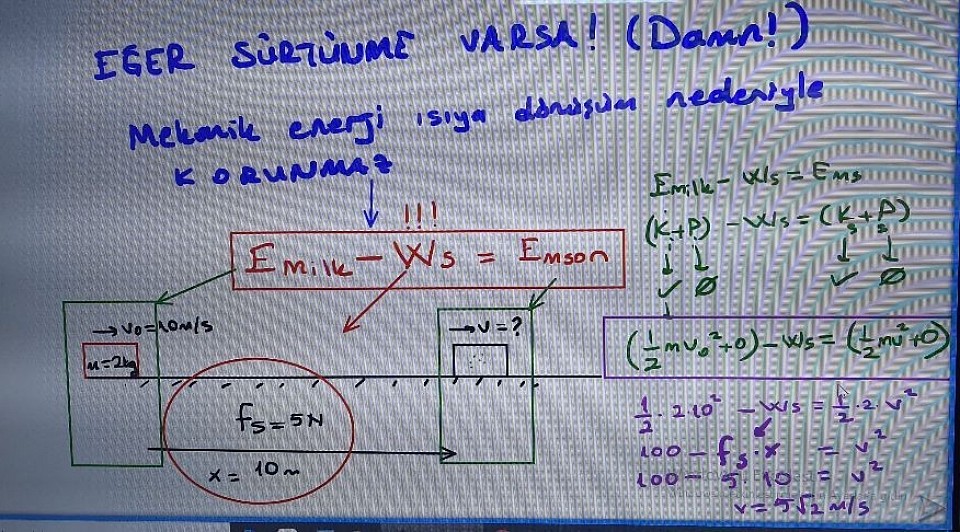 EĞER SÜRTÜNME VARSA! (Damn!)
Mekanik enerji ısıya dönüşüm nedeniyle
KORUNMAZ
!!!
Emilk - Ws = Emson
→ v₀ = 10 m/s
m = 2kg
→ v = ?
fs = 5N
x = 10 m
Emilk - Ws = Ems
(Kᵢ + Pᵢ) - Ws = (Ks + Ps)
↓ ↓ ↓ ↓
✓ Ø ✓ Ø
(½mv₀² + 0) - Ws = (½mv² + 0)
½ . 2 . 10² - Ws = ½ . 2 . v²
100 - fs . x = v²
100 - 5 . 10 = v²
v = 5√2 m/s